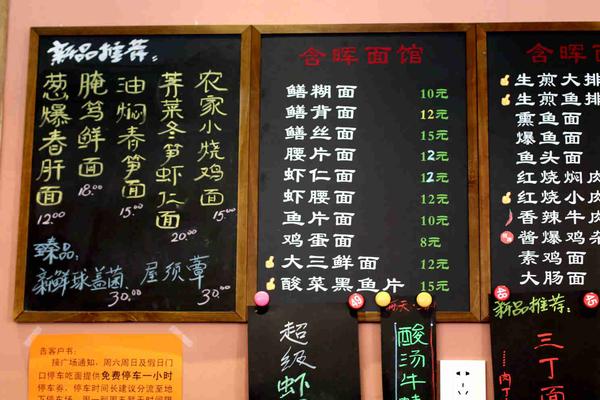 新品推荐：
农家小烧鸡面 15.00
荠菜冬笋虾仁面 20.00
油焖春笋面 15.00
腌笃鲜面 18.00
葱爆春肝面 12.00
臻品：
新鲜球盖菌 30.00
屋须蕈 30.00
含晖面馆
鳝糊面 10元
鳝背面 12元
鳝丝面 15元
腰片面 12元
虾仁面 12元
虾腰面 12元
鱼片面 10元
鸡蛋面 8元
大三鲜面 12元
酸菜黑鱼片 15元
含晖面
生煎大排
生煎鱼排
熏鱼面
爆鱼面
鱼头面
红烧焖肉
红烧小肉
香辣牛肉
酱爆鸡杂
素鸡面
大肠面
告客户书：
接广场通知，周六周日及假日门
口停车吃面提供免费停车一小时
停车券，停车时长建议分流至地
超级虾
酸汤牛
新品推荐：
三丁面